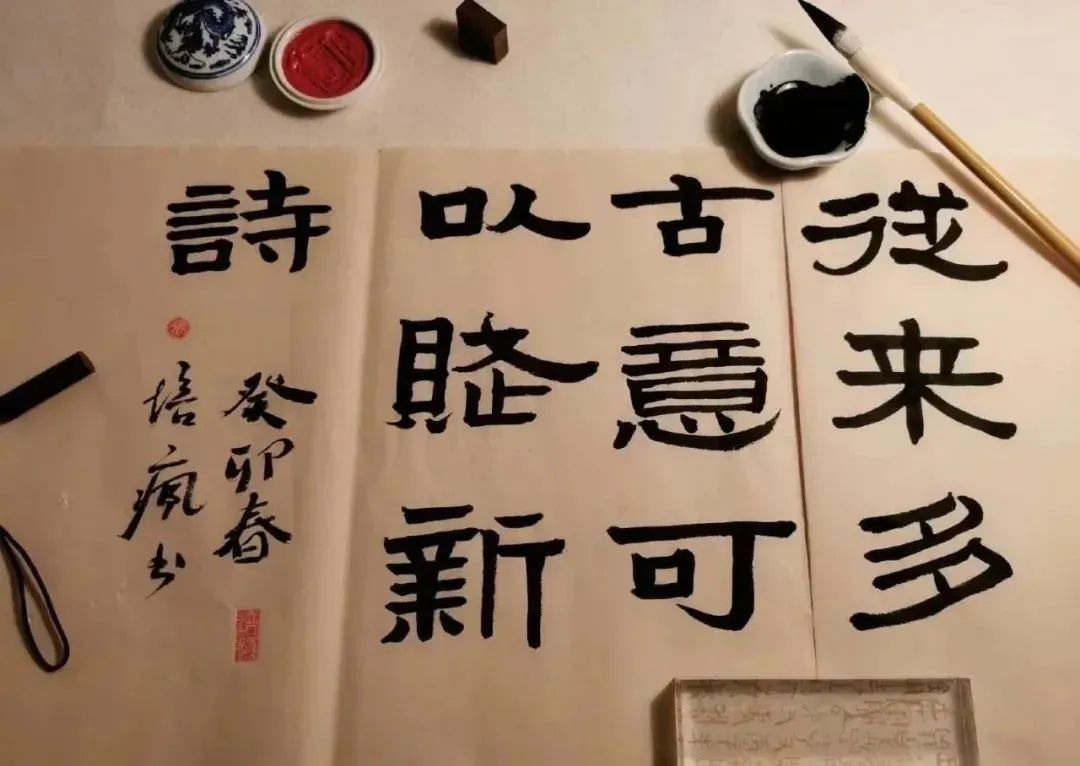 從来多
古意可
以賦新
詩
癸卯春
培疯书